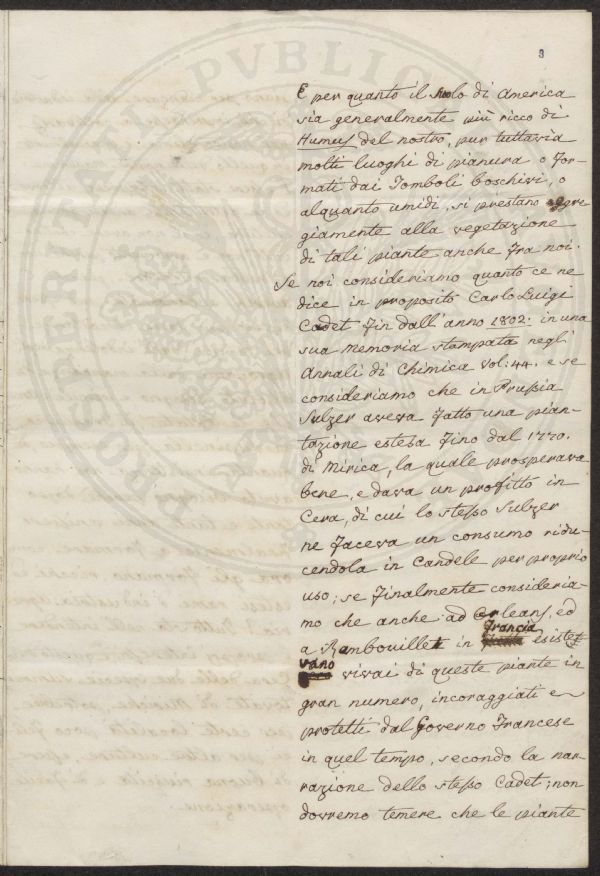 3
E per quanto il suolo di America
sia generalmente più ricco di
Humus del nostro, pur tuttavia
molti luoghi di pianura o for-
mati dai Tomboli boschivi, o
alquanto umidi, si prestano eggre
giamente alla vegetazione
di tali piante anche fra noi.
Se noi consideriamo quanto ce ne
dice in proposito Carlo Luigi
Cadet fin dall' anno 1802: in una
sua Memoria stampata negl'
Annali di Chimica Vol: 44. e se
consideriamo che in Prussia
Sulzer aveva fatto una pian-
tazione estesa fino dal 1770.
di Mirica, la quale prosperava
bene, e dava un profitto in
Cera, di cui lo stesso Sulzer
ne faceva un consumo ridu-
cendola in Candele per proprio
uso; se finalmente consideria-
mo che anche ad Orleans, ed
a Rambouillet in Francia esiste
vano vivai di queste piante in
gran numero, incoraggiati e
protetti dal Governo Francese
in quel tempo, secondo la nar-
razione dello stesso Cadet; non
dovremo temere che le piante
PROSPERITATI PVBLICAE